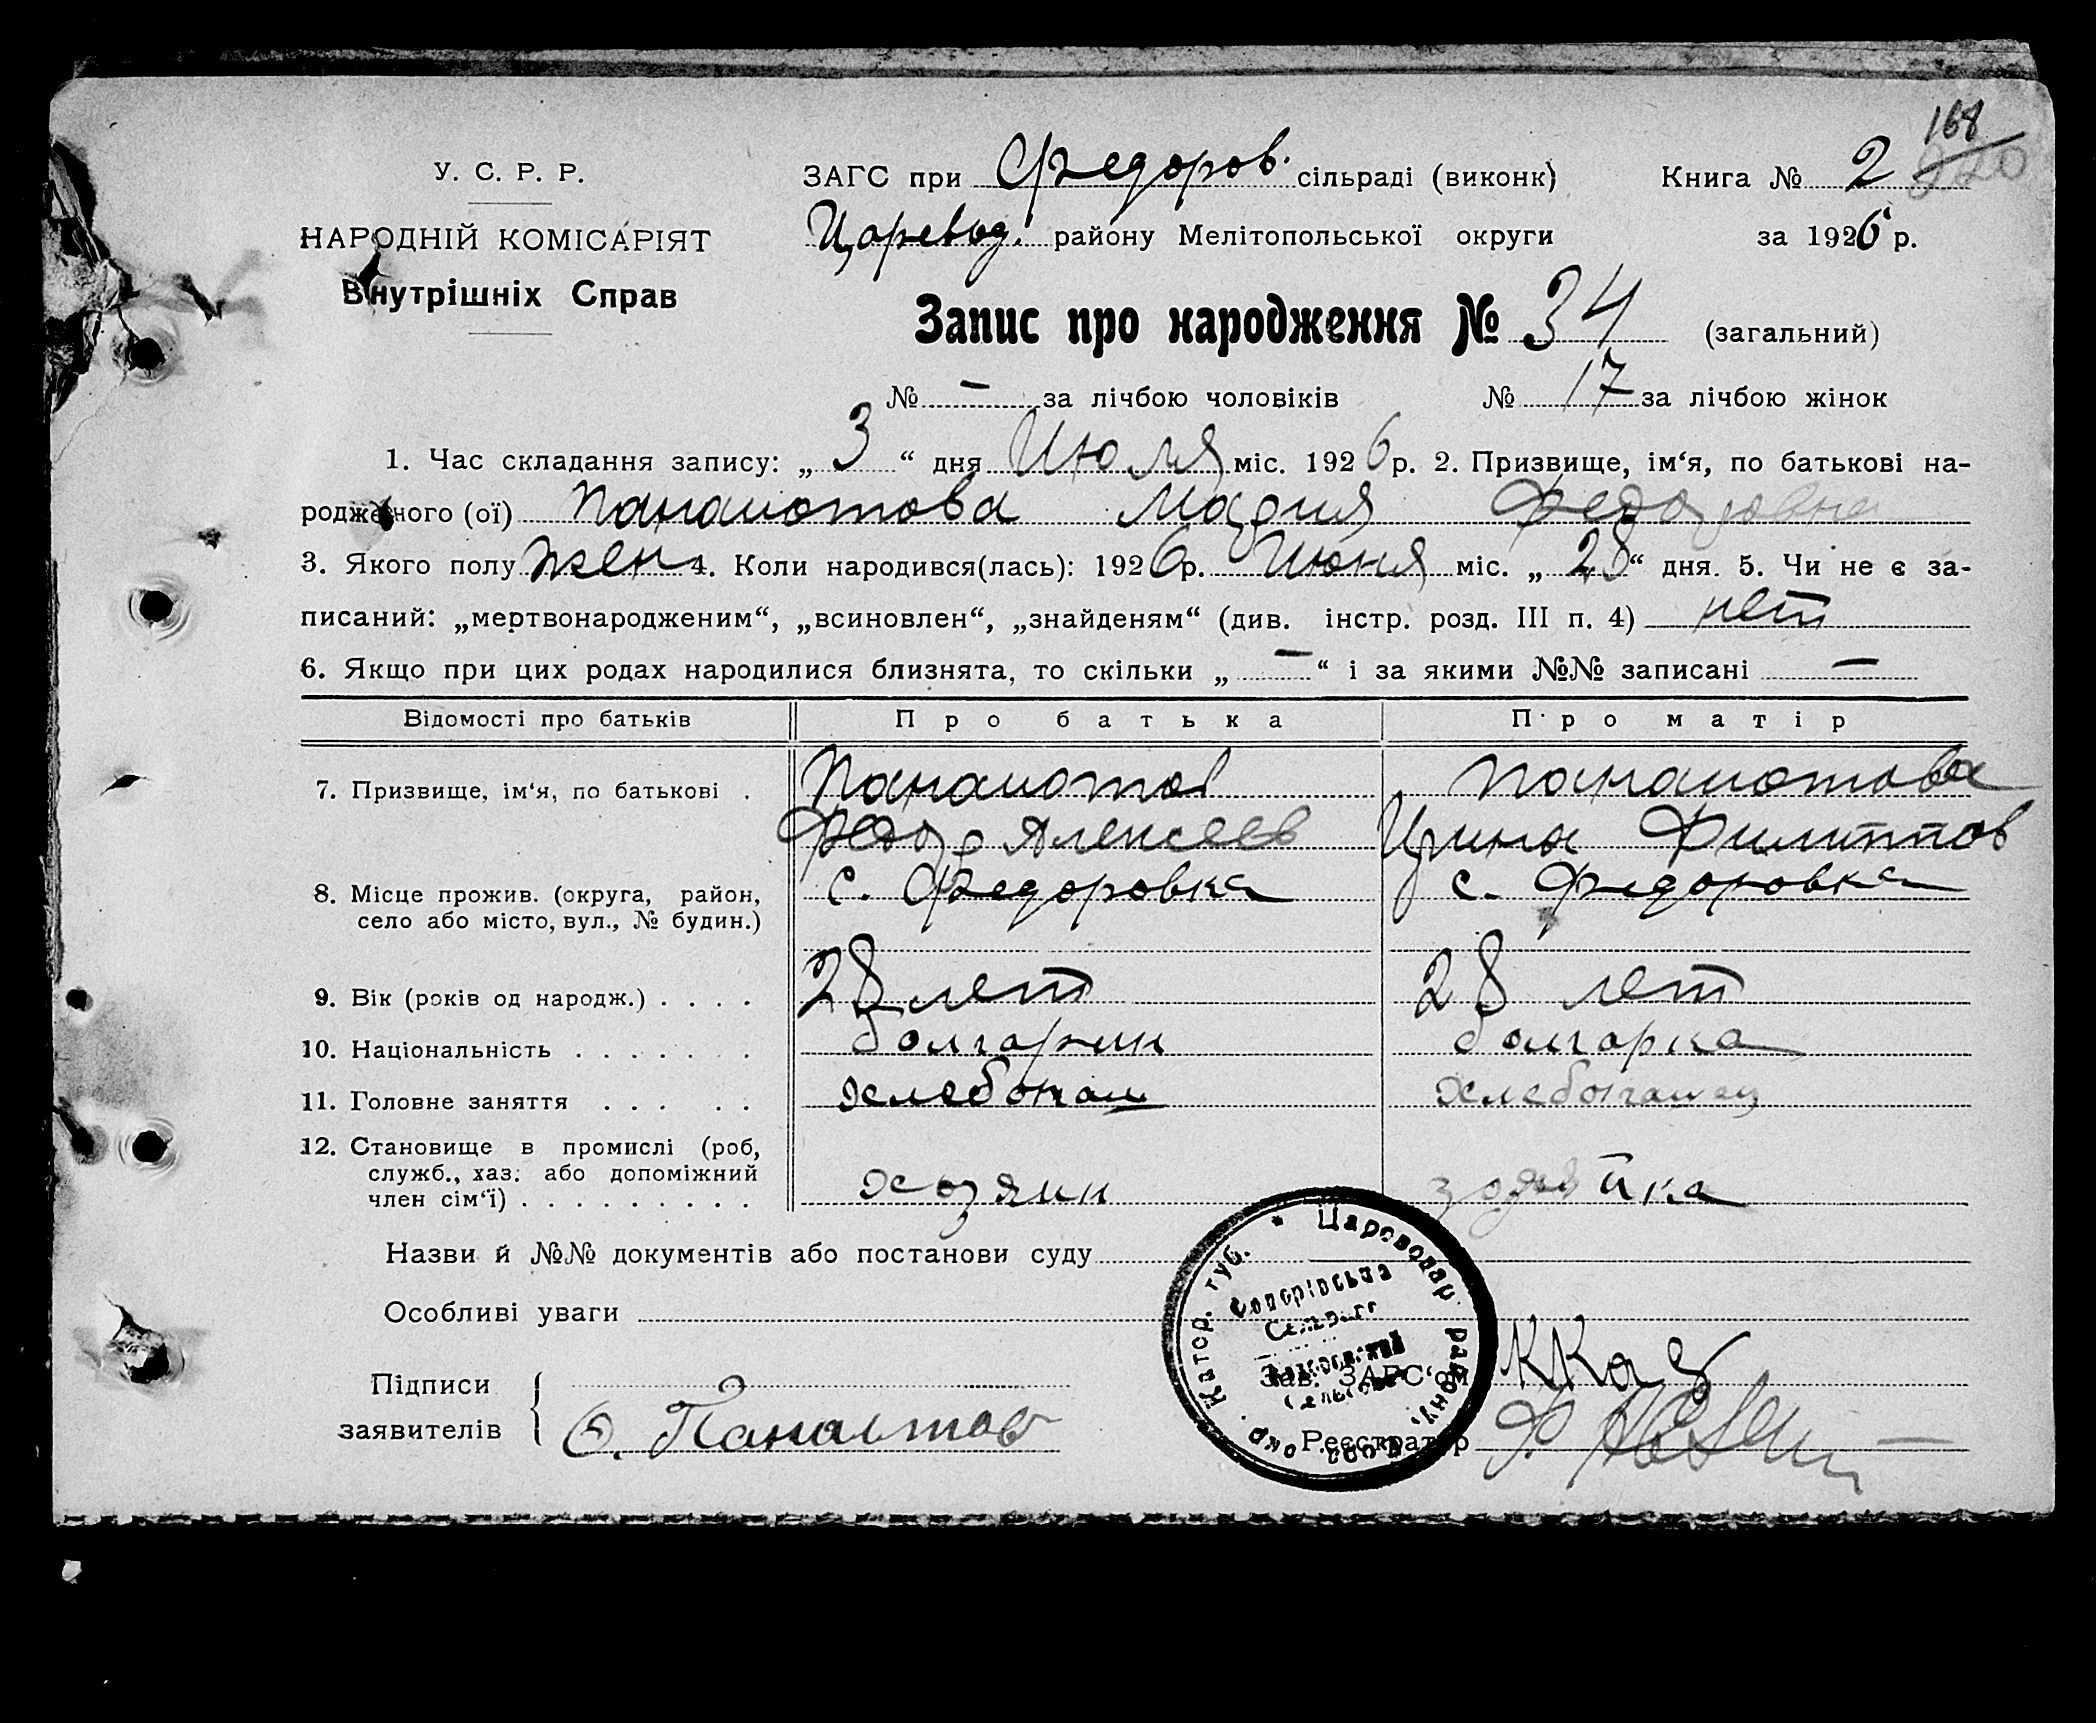 168
220
У. С. Р. Р.
ЗАГС при Федоров. сільраді (виконк) Книга № 2
НАРОДНІЙ КОМІСАРІЯТ
Царевод. району Мелітопольської округи за 1926 р.
Внутрішніх Справ
Запис про народження № 34 (загальний)
№ — за лічбою чоловіків № 17 за лічбою жінок
1. Час складання запису: „ 3 “ дня Июля міс. 1926 р. 2. Призвище, ім‘я, по батькові на-
родженого (ої) Панаиотова Мария Федоровна
3. Якого полу жен 4. Коли народився(лась): 1926 р. Июня міс. „ 28 “ дня. 5. Чи не є за-
писаний: „мертвонародженим“, „всиновлен“, „знайденям“ (див. інстр. розд. III п. 4) нет
6. Якщо при цих родах народилися близнята, то скільки „ — “ і за якими №№ записані —
Відомості про батьків Про батька Про матір
7. Призвище, ім‘я, по батькові . Панаиотов Панаиотова
Федор Алексеев Ирина Филиппов
8. Місце прожив. (округа, район, с. Федоровка с. Федоровка
село або місто, вул., № будин.)
9. Вік (років од народж.) . . . . 28 лет 28 лет
10. Національність . . . . . . . болгарин болгарка
11. Головне заняття . . . . . хлебопаш хлебопашец
12. Становище в промислі (роб,
служб., хаз. або допоміжний
член сім‘ї) . . . . . . . . . хозяин
Назви й №№ документів або постанови суду
Особливі уваги
Цареводар. району, окр. Катор. губ. *
Підписи
Зав. ЗАГС‘ом
заявителів Ф. Панаиотов
Реєстратор